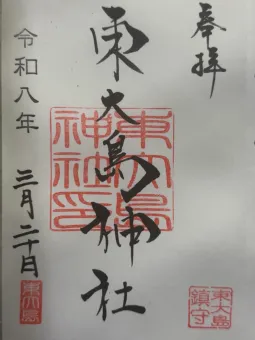 奉拝
東大島神社
東大島神社印
令和八年 三月二十日
東大島鎮守
東大島